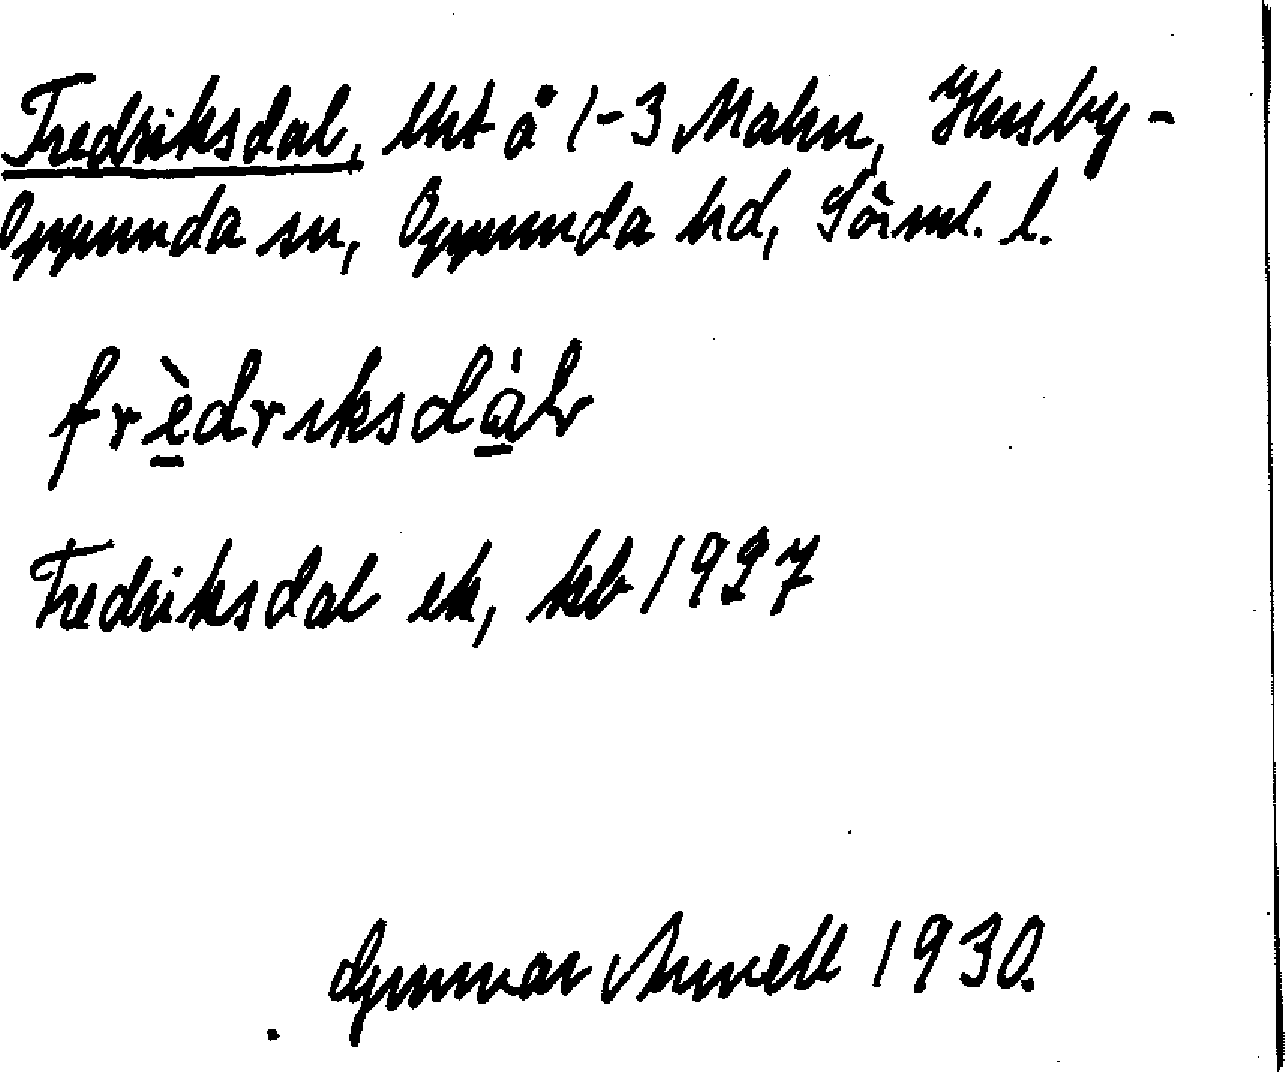 Fredriksdal, lht å 1-3 Malm, Husby-
Oppunda sn, Oppunda hd, Sörml. l.
frèdriksdàl
Fredriksdal ek, kb 1927
Gunnar Arwell 1930.